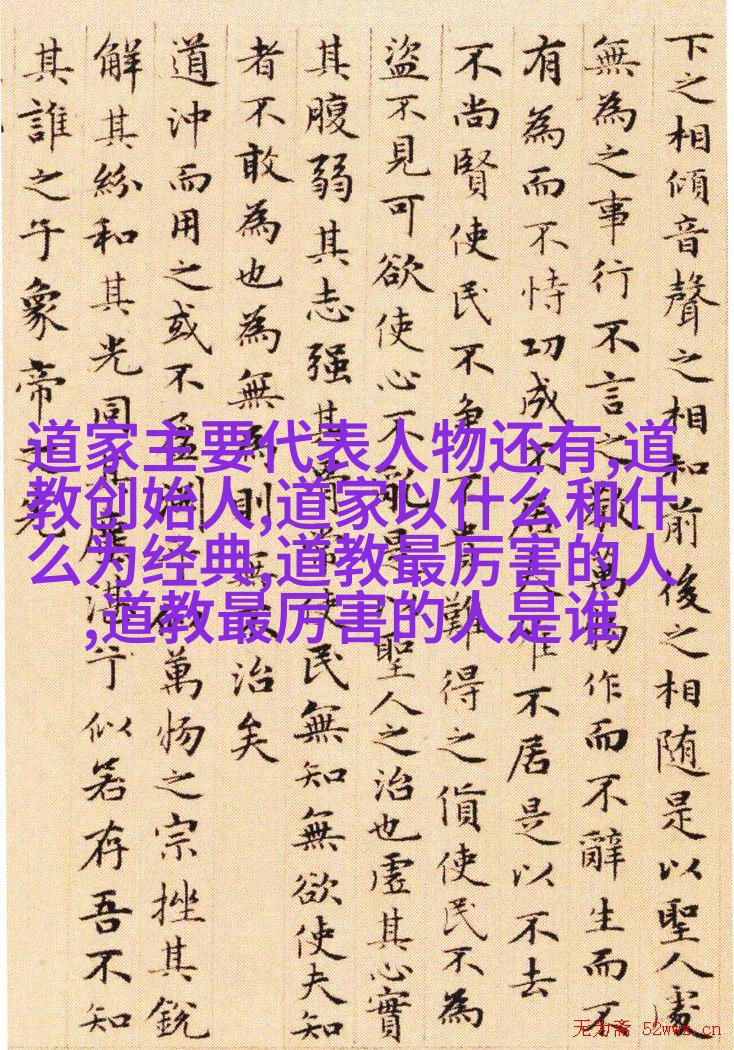 下之相傾音聲之相和前後之相随是以聖人處
無為之事行不言之教萬物作而不辭生而不
有為而不恃功成不居夫唯不居是以不去
不尚賢使民不争不貴難得之貨使民不為
盜不見可欲使心不亂是以聖人之治也虛其心實
其腹弱其志强其骨常使民無知無欲使夫知
者不敢為也為無為則治矣
道沖而用之或不盈淵萬物之宗挫其銳
解其紛和其光同其塵湛兮似若存吾不知
其誰之子象帝之先
道家主要代表人物还有,道
教创始人,道家以什么和什
么为经典,道教最厉害的人
,道教最厉害的人是谁
无为斋 52wwz.cn